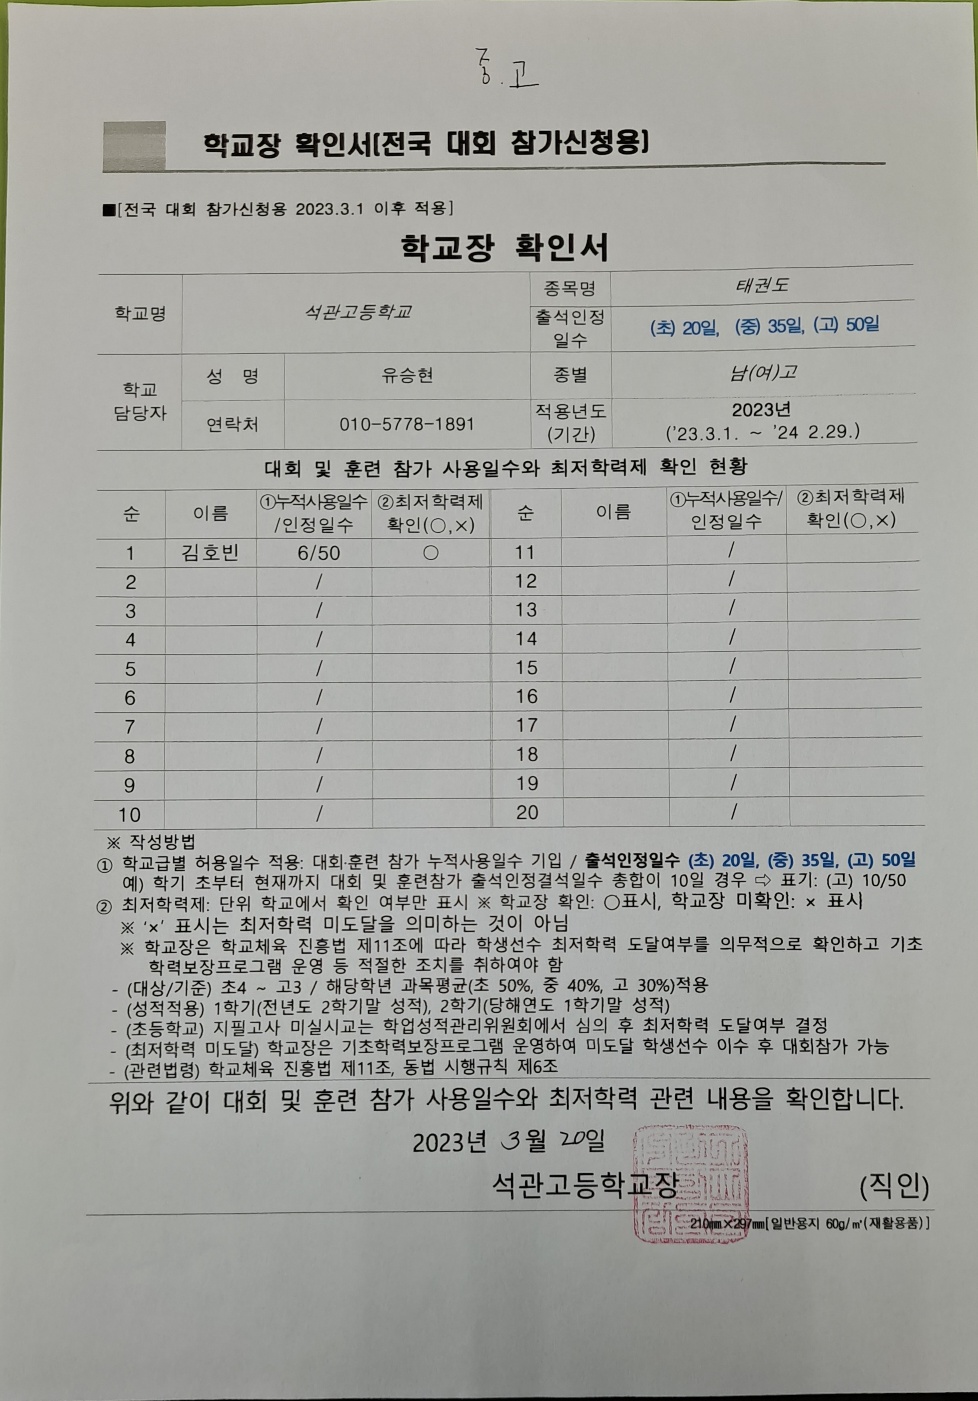 중.고
학교장 확인서(전국 대회 참가신청용)
■[전국 대회 참가신청용 2023.3.1 이후 적용]
학교장 확인서
학교명 석관고등학교 종목명 태권도
출석인정 일수 (초) 20일, (중) 35일, (고) 50일
학교 담당자 성 명 유승현 종별 남(여)고
연락처 010-5778-1891 적용년도 (기간) 2023년 ('23.3.1. ~ '24 2.29.)
대회 및 훈련 참가 사용일수와 최저학력제 확인 현황
순 이름 ①누적사용일수/인정일수 ②최저학력제 확인(○,×) 순 이름 ①누적사용일수/인정일수 ②최저학력제 확인(○,×)
1 김호빈 6/50 ○ 11 /
2 / 12 /
3 / 13 /
4 / 14 /
5 / 15 /
6 / 16 /
7 / 17 /
8 / 18 /
9 / 19 /
10 / 20 /
※ 작성방법
① 학교급별 허용일수 적용: 대회·훈련 참가 누적사용일수 기입 / 출석인정일수 (초) 20일, (중) 35일, (고) 50일
예) 학기 초부터 현재까지 대회 및 훈련참가 출석인정결석일수 총합이 10일 경우 ⇨ 표기: (고) 10/50
② 최저학력제: 단위 학교에서 확인 여부만 표시 ※ 학교장 확인: ○표시, 학교장 미확인: × 표시
※ '×' 표시는 최저학력 미도달을 의미하는 것이 아님
※ 학교장은 학교체육 진흥법 제11조에 따라 학생선수 최저학력 도달여부를 의무적으로 확인하고 기초
학력보장프로그램 운영 등 적절한 조치를 취하여야 함
- (대상/기준) 초4 ~ 고3 / 해당학년 과목평균(초 50%, 중 40%, 고 30%)적용
- (성적적용) 1학기(전년도 2학기말 성적), 2학기(당해연도 1학기말 성적)
- (초등학교) 지필고사 미실시교는 학업성적관리위원회에서 심의 후 최저학력 도달여부 결정
- (최저학력 미도달) 학교장은 기초학력보장프로그램 운영하여 미도달 학생선수 이수 후 대회참가 가능
- (관련법령) 학교체육 진흥법 제11조, 동법 시행규칙 제6조
위와 같이 대회 및 훈련 참가 사용일수와 최저학력 관련 내용을 확인합니다.
2023년 3월 20일
석관고등학교장 (직인)
210㎜×297㎜[일반용지 60g/㎡(재활용품)]